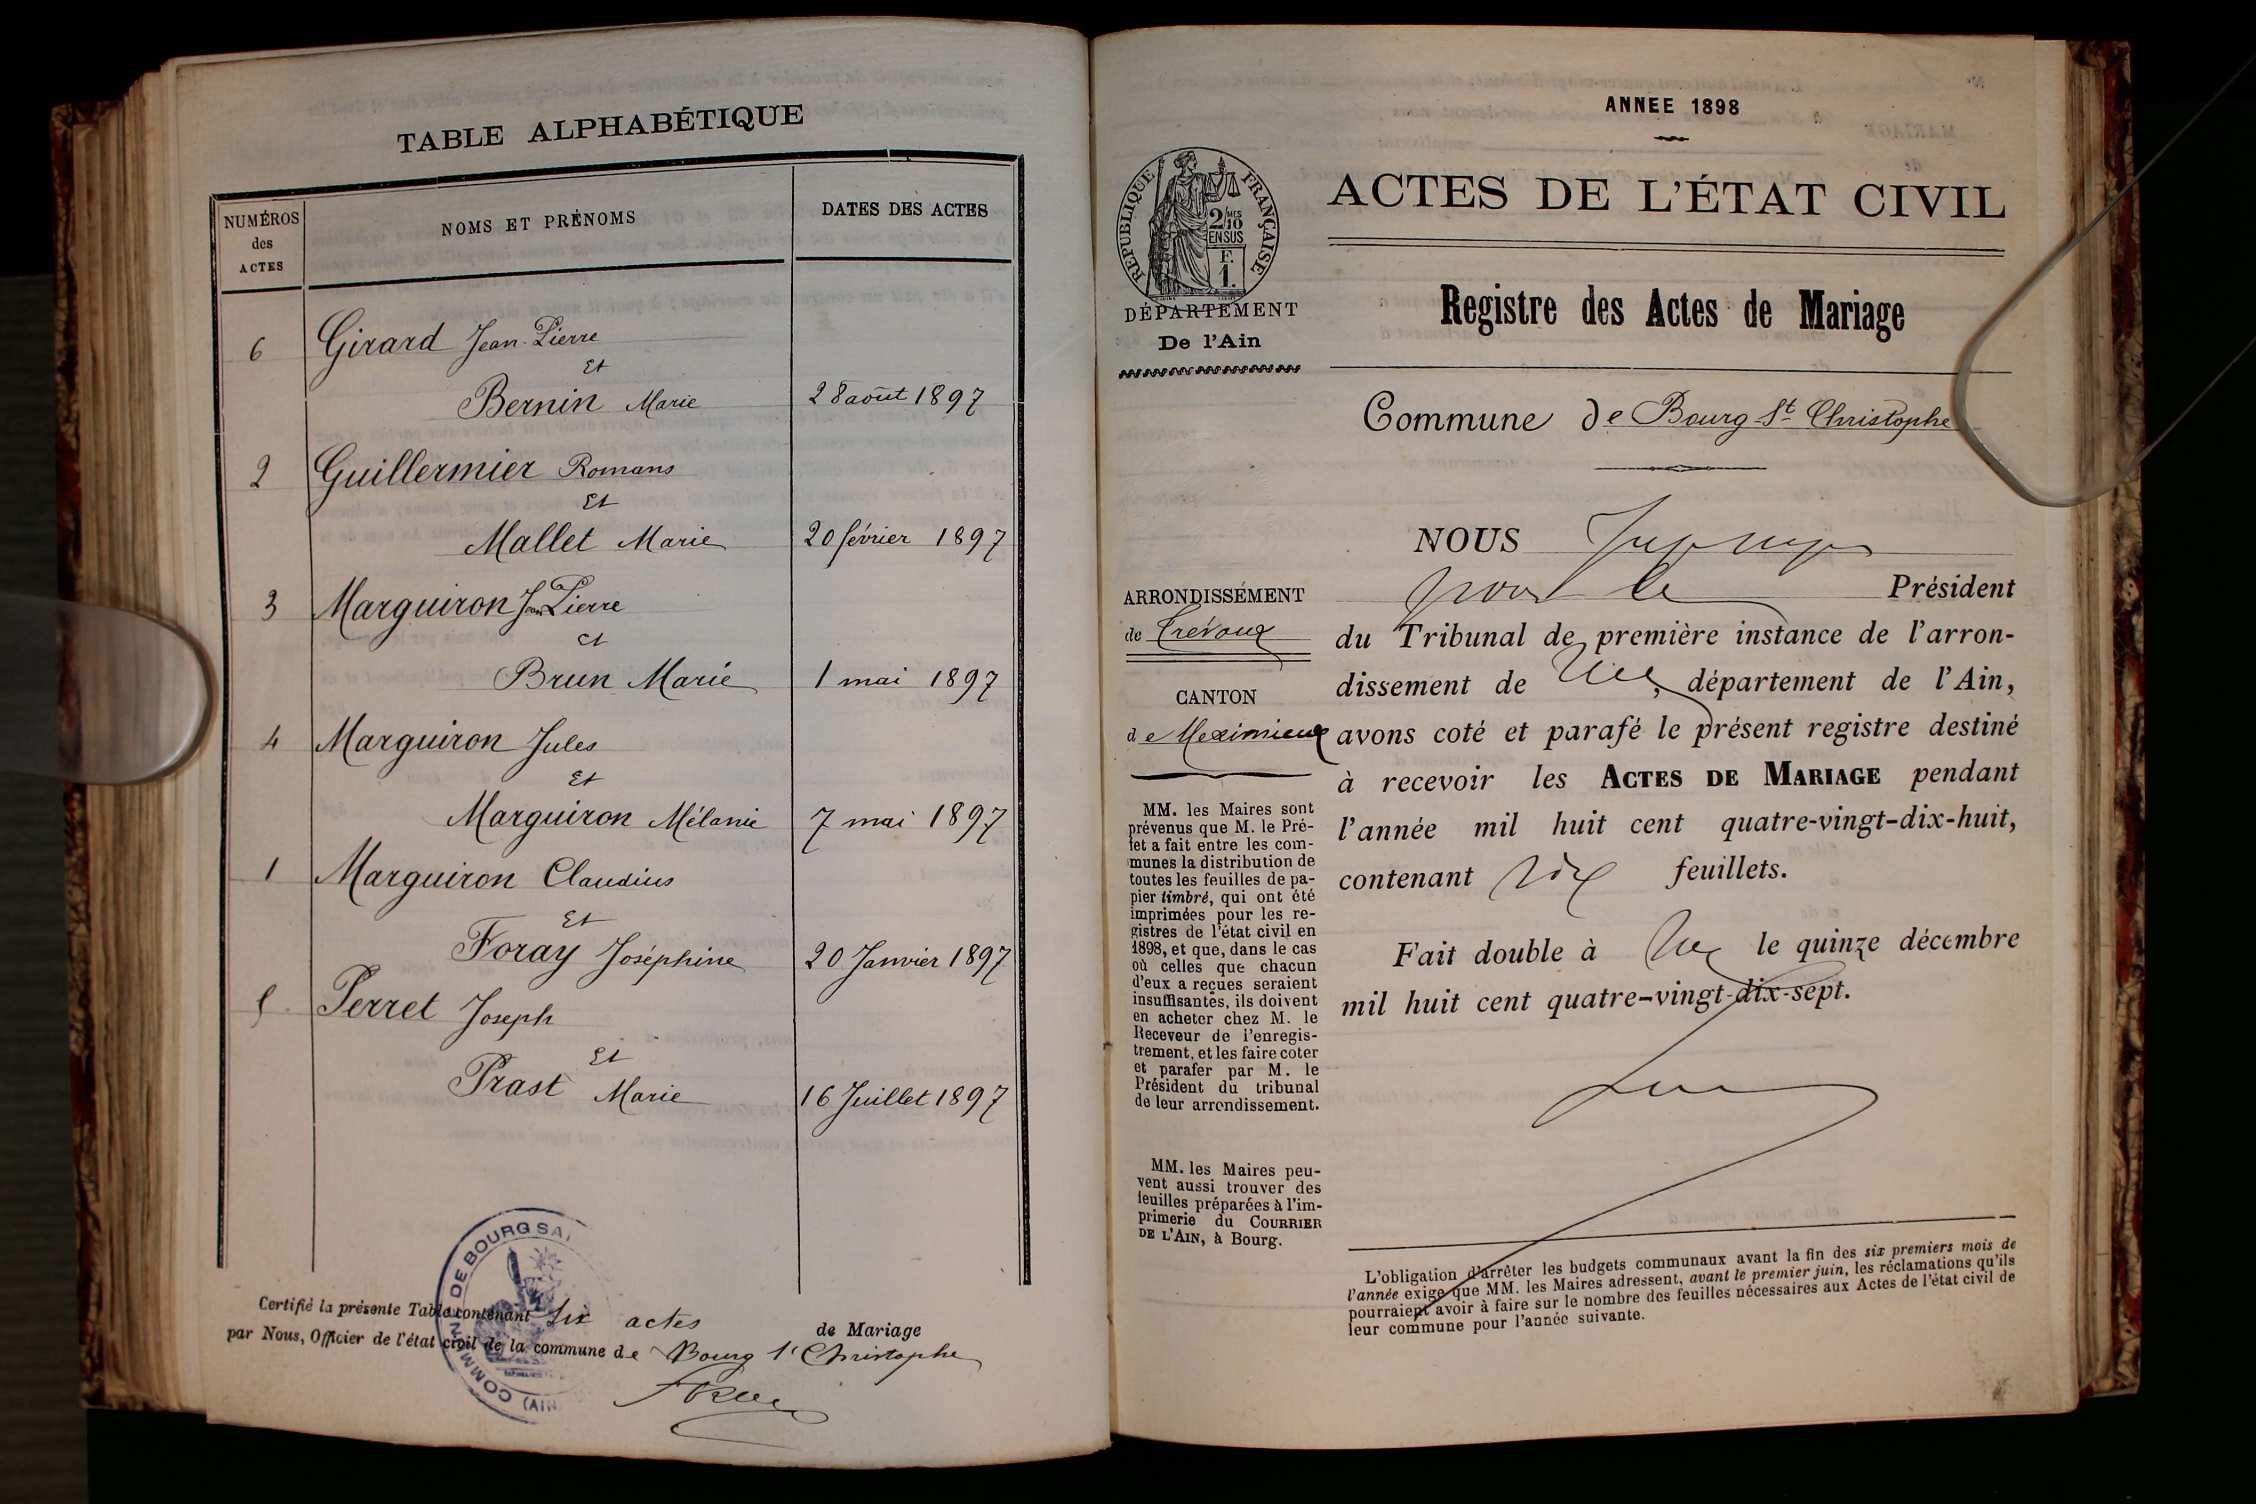 TABLE ALPHABÉTIQUE
NUMÉROS
des
ACTES
NOMS ET PRÉNOMS
DATES DES ACTES
6 Girard Jean-Pierre
Et
Bernin Marie 28 août 1897
2 Guillermier Romans
Et
Mallet Marie 20 février 1897
3 Marguiron Jean Pierre
Et
Brun Marie 1 mai 1897
4 Marguiron Jules
Et
Marguiron Mélanie 7 mai 1897
1 Marguiron Claudius
Et
Foray Joséphine 20 Janvier 1897
5 Perret Joseph
Et
Prast Marie 16 Juillet 1897
COMMUNE DE BOURG SAI
(AIN)
Certifié la présente Table contenant six actes de Mariage
par Nous, Officier de l'état civil de la commune de Bourg St Christophe
ANNEE 1898
RÉPUBLIQUE FRANÇAISE
2/10 MES
EN SUS
F.
1.
DÉPARTEMENT
De l'Ain
ACTES DE L'ÉTAT CIVIL
Registre des Actes de Mariage
Commune de Bourg-St-Christophe
ARRONDISSEMENT
de Trévoux
CANTON
de Meximieux
MM. les Maires sont
prévenus que M. le Pré-
fet a fait entre les com-
munes la distribution de
toutes les feuilles de pa-
pier timbré, qui ont été
imprimées pour les re-
gistres de l'état civil en
1898, et que, dans le cas
où celles que chacun
d'eux a reçues seraient
insuffisantes, ils doivent
en acheter chez M. le
Receveur de l'enregis-
trement, et les faire coter
et parafer par M. le
Président du tribunal
de leur arrondissement.
MM. les Maires peu-
vent aussi trouver des
feuilles préparées à l'im-
primerie du COURRIER
DE L'AIN, à Bourg.
NOUS
pour le Président
du Tribunal de première instance de l'arron-
dissement de , département de l'Ain,
avons coté et parafé le présent registre destiné
à recevoir les ACTES DE MARIAGE pendant
l'année mil huit cent quatre-vingt-dix-huit,
contenant feuillets.
Fait double à le quinze décembre
mil huit cent quatre-vingt-dix-sept.
L'obligation d'arrêter les budgets communaux avant la fin des six premiers mois de
l'année exige que MM. les Maires adressent, avant le premier juin, les réclamations qu'ils
pourraient avoir à faire sur le nombre des feuilles nécessaires aux Actes de l'état civil de
leur commune pour l'année suivante.